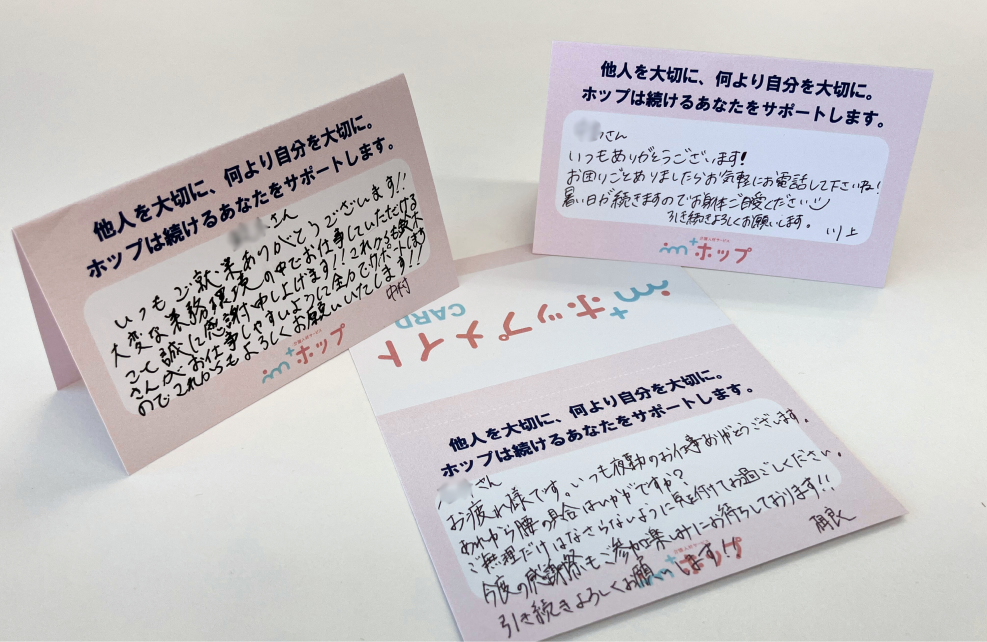 他人を大切に、何より自分を大切に。
ホップは続けるあなたをサポートします。
さん
いつもご就業ありがとうございます!!
大変な業務環境の中でお仕事していただける
こと誠に感謝申し上げます!!これからも
さんがお仕事しやすいように全力でサポートします
のでこれからもよろしくお願いいたします!!
中村
ホップ
他人を大切に、何より自分を大切に。
ホップは続けるあなたをサポートします。
さん
いつもありがとうございます!
お困りごとありましたらお気軽にお電話して下さいね!
暑い日が続きますのでお身体ご自愛ください
引き続きよろしくお願いします。
川上
ホップ
ホップメイト
CARD
他人を大切に、何より自分を大切に。
ホップは続けるあなたをサポートします。
さん
お疲れ様です。いつも夜勤のお仕事ありがとうございます。
あれから腰の具合はいかがですか?
ご無理だけはなさらないように気を付けてお過ごしください。
今度の感謝祭もご参加楽しみにお待ちしております!!
引き続きよろしくお願いします!!
ホップ